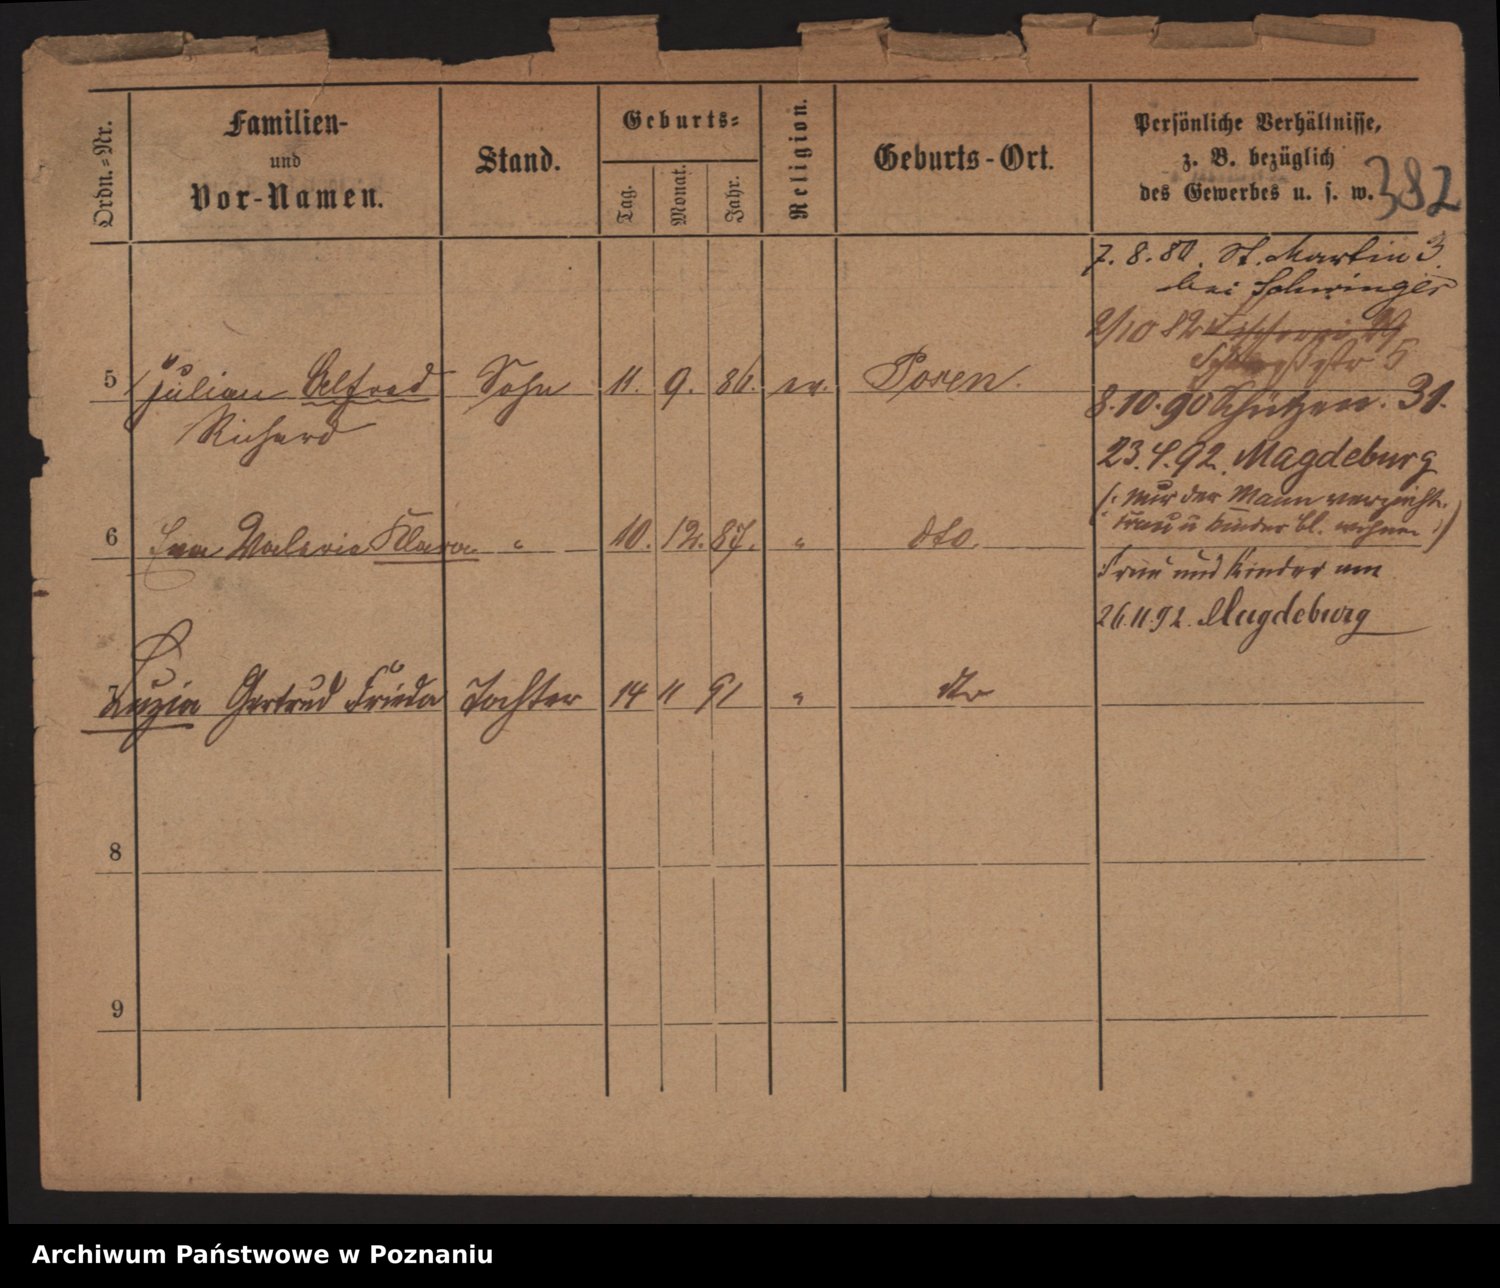 Ordn.-Nr.
Familien-
und
Vor-Namen.
Stand.
Geburts-
Tag.
Monat.
Jahr.
Religion.
Geburts-Ort.
Persönliche Verhältnisse,
z. B. bezüglich
des Gewerbes u. s. w.
382
7. 8. 80. St. Martin 3
bei Schwinger
2/10 82
5
8.10.90 Schützen. 31.
23.4.92. Magdeburg
(: nur der Mann verzieht.
Frau u Kinder bl. wohnen :)
Frau und Kinder am
26.11.92. Magdeburg
5 Julian Alfred Sohn 11. 9. 86. ev. Posen.
Richard
6 Eva Valerie Klara " 10. 12. 87. " dto.
Luzia Gertrud Frieda Tochter 14 11 91 " dto
8
9
Archiwum Państwowe w Poznaniu